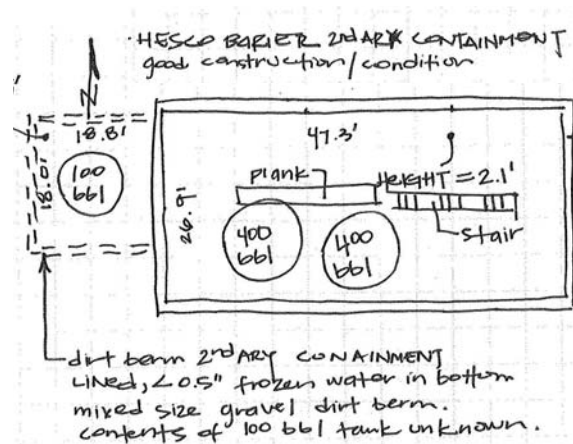 ·HESCO BARIER 2ndARY CONTAINMENT
good construction/condition
N
18.8'
47.3'
18.0'
100
bbl
plank
HEIGHT = 2.1'
26.9'
400
bbl
400
bbl
stair
dirt berm 2ndARY CONAINMENT
LINED, <0.5" frozen water in bottom
mixed size gravel dirt berm.
contents of 100 bbl tank unknown.